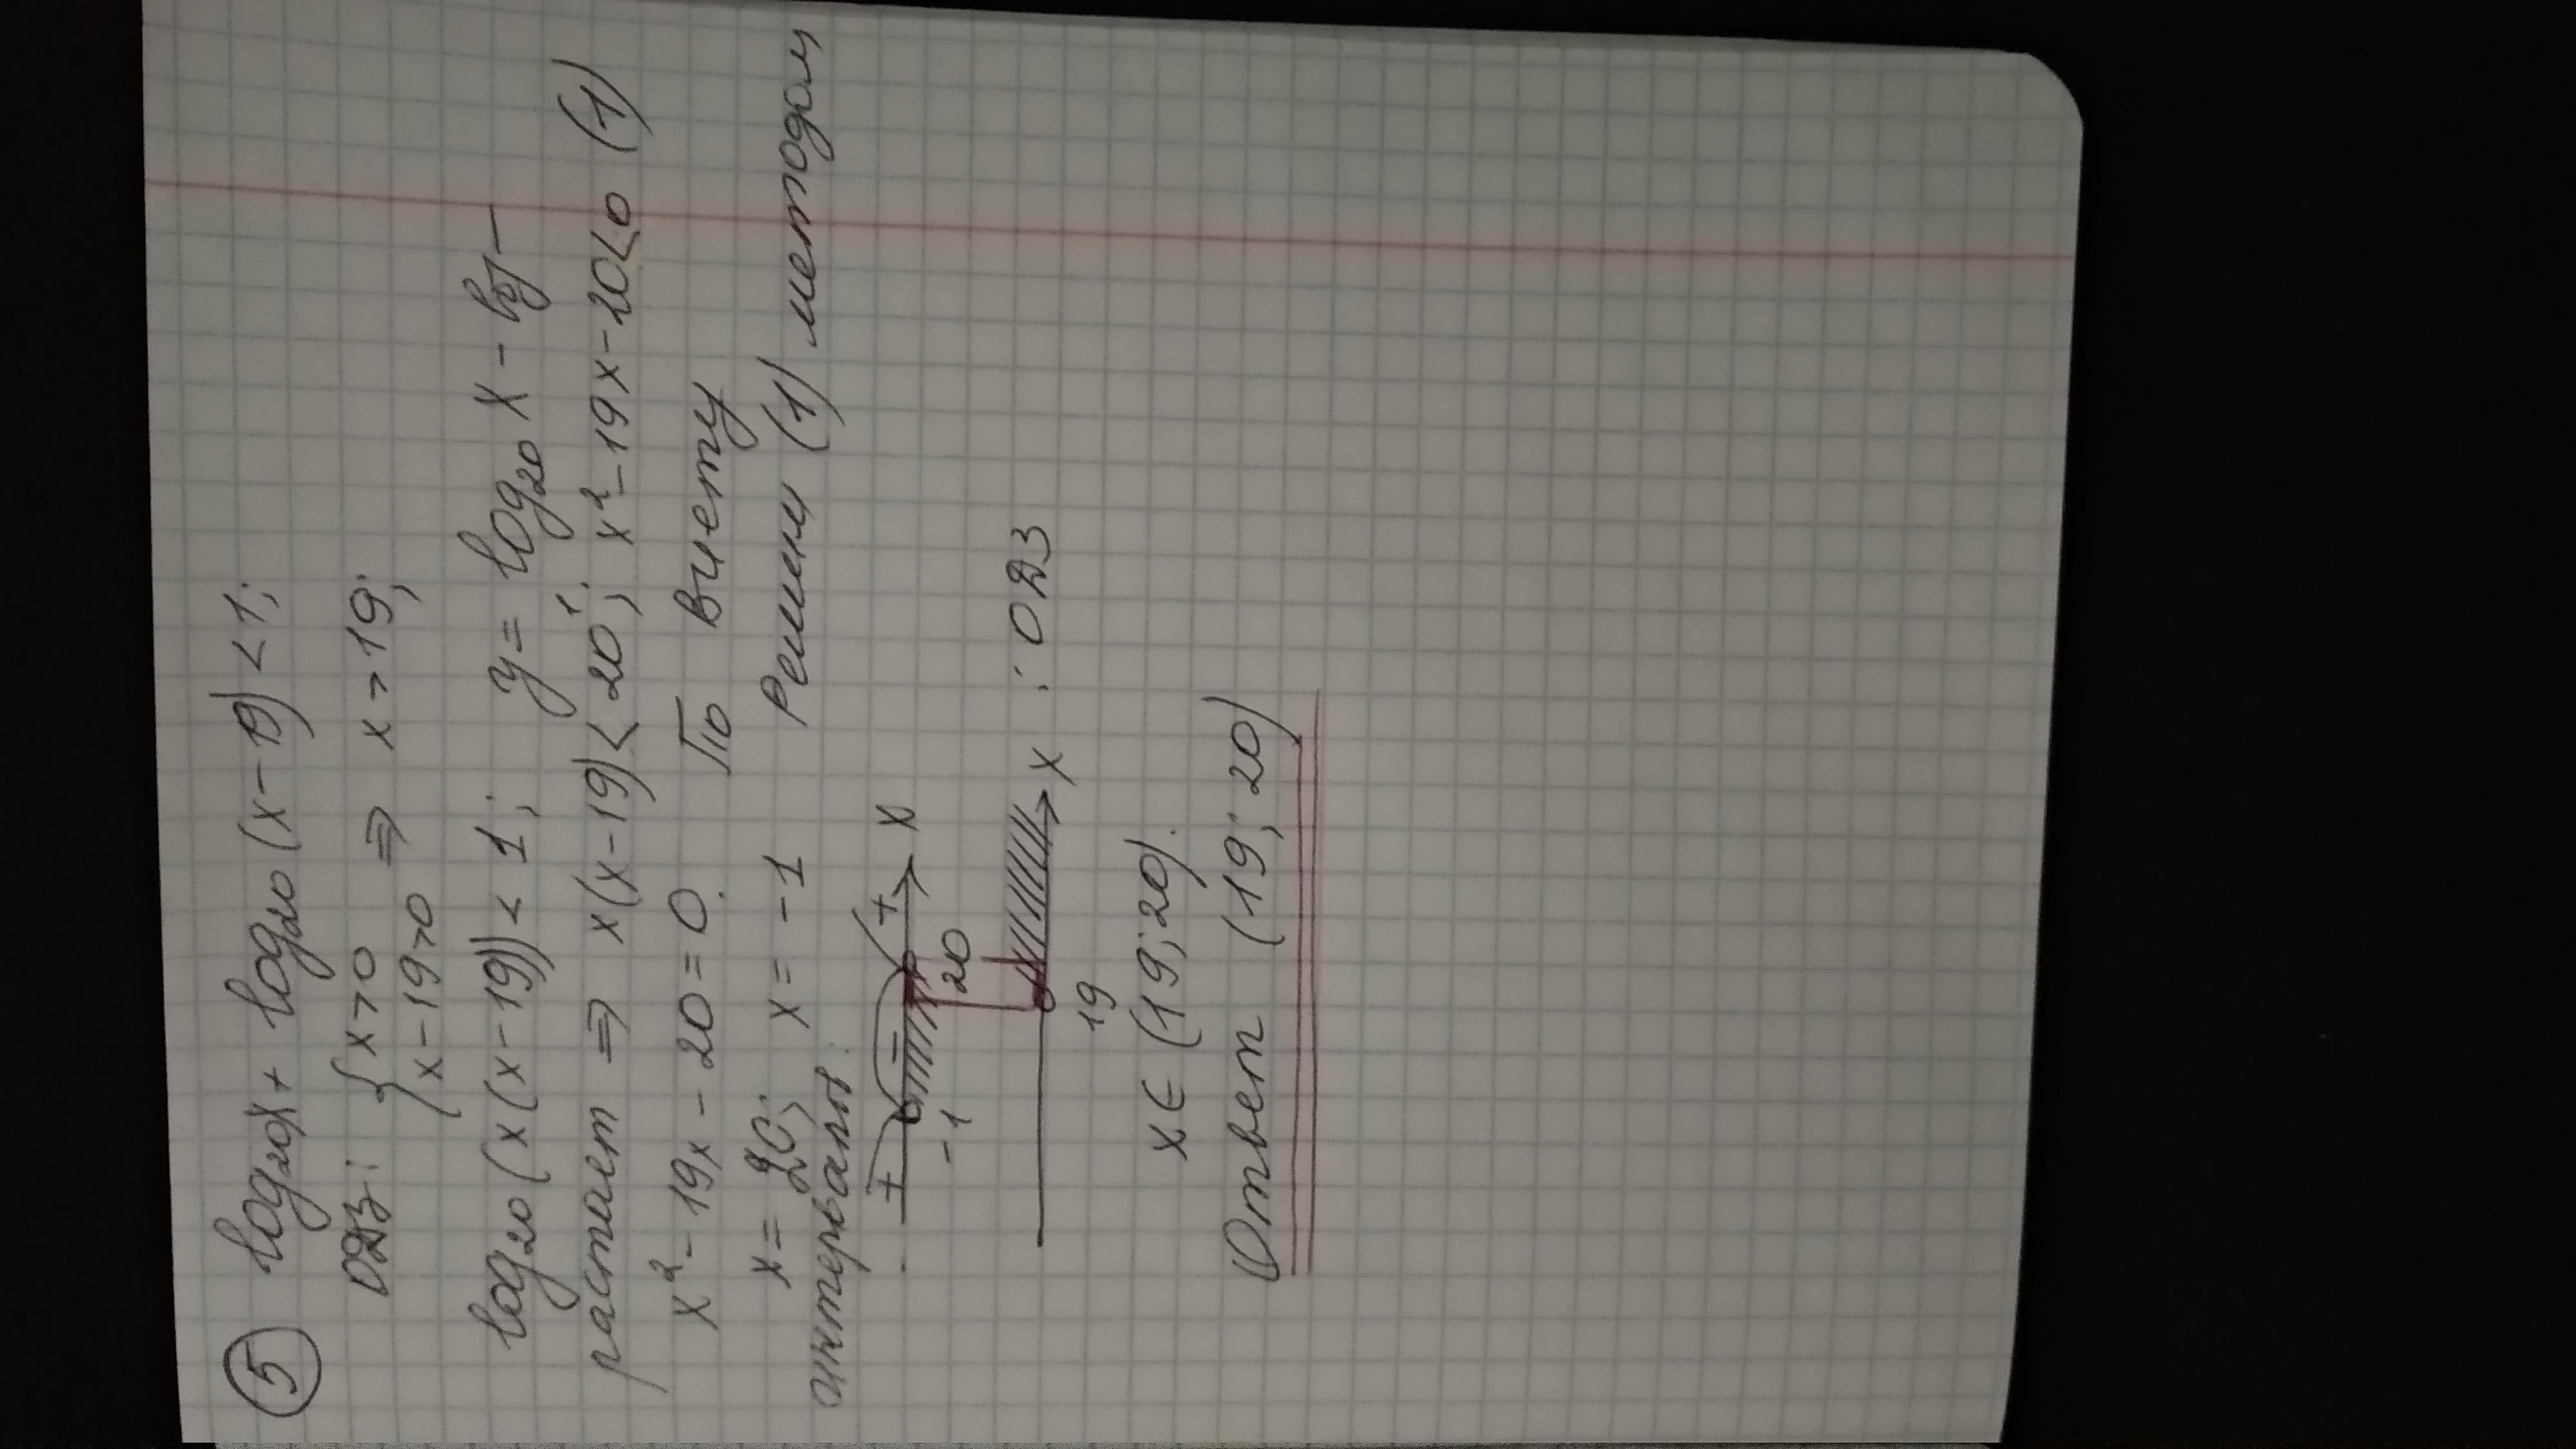 5 log₂₀x + log₂₀(x-19) < 1;
ОДЗ: { x>0
x-19>0 ⇒ x > 19;
log₂₀(x(x-19)) < 1; y = log₂₀ x - воз-
растает ⇒ x(x-19) < 20¹; x²-19x-20<0 (1)
x²-19x-20=0. По Виету
x = 20; x = -1 Решим (1) методом
интервалов.
+ - + x
-1 20
x : ОДЗ
19
x ∈ (19; 20).
Ответ (19; 20)